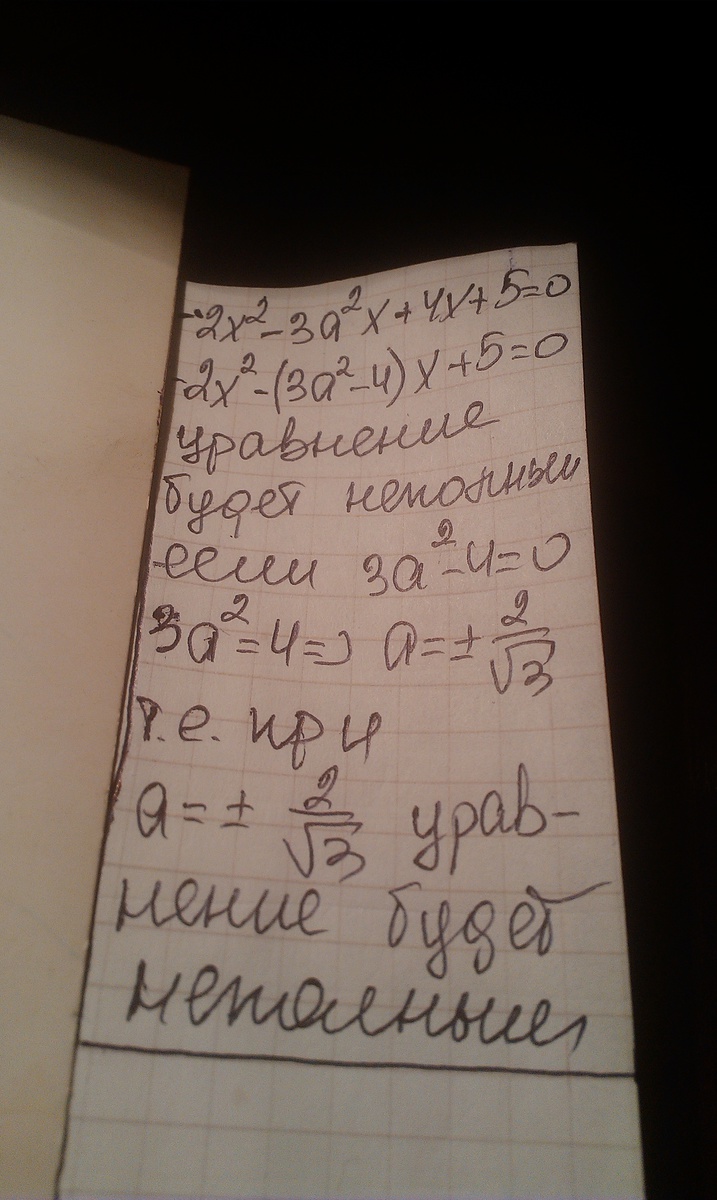 -2x²-3a²x+4x+5=0
-2x²-(3a²-4)x+5=0
уравнение
будет неполным
если 3a²-4=0
3a²=4=> a=± 2/√3
т.е. при
a=± 2/√3 урав-
нение будет
неполным